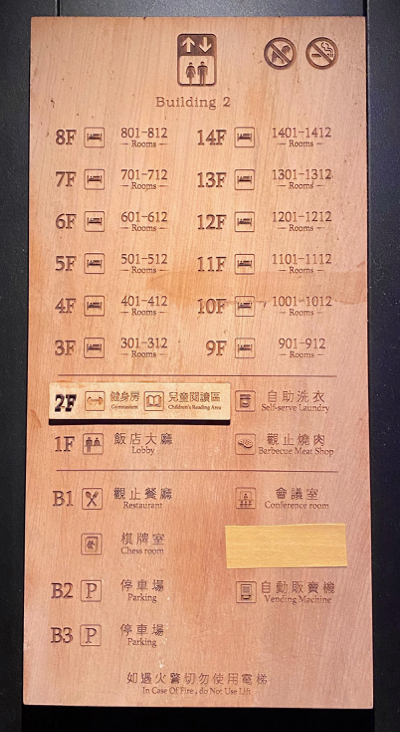 Building 2
8F 801-812 14F 1401-1412
Rooms Rooms
7F 701-712 13F 1301-1312
Rooms Rooms
6F 601-612 12F 1201-1212
Rooms Rooms
5F 501-512 11F 1101-1112
Rooms Rooms
4F 401-412 10F 1001-1012
Rooms Rooms
3F 301-312 9F 901-912
Rooms Rooms
2F 健身房 兒童閱讀區 自助洗衣
Gymnasium Children's Reading Area Self-serve Laundry
1F 飯店大廳 觀止燒肉
Lobby Barbecue Meat Shop
B1 觀止餐廳 會議室
Restaurant Conference room
棋牌室
Chess room
B2 P 停車場 自動販賣機
Parking Vending Machine
B3 P 停車場
Parking
如遇火警切勿使用電梯
In Case Of Fire, do Not Use Lift